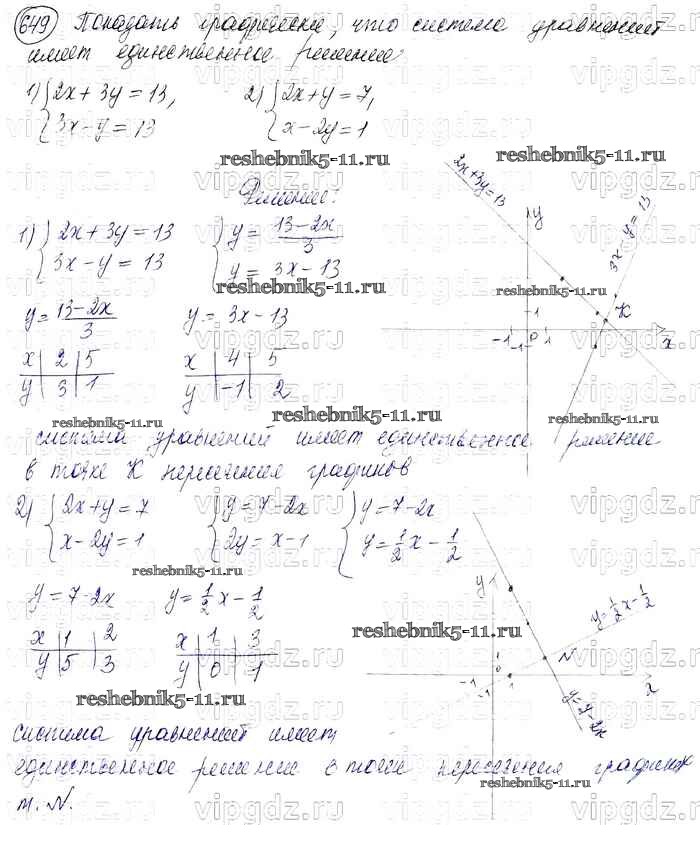 649 Показать графически, что система уравнений
имеет единственное решение:
1) { 2x + 3y = 13, 2) { 2x + y = 7,
3x - y = 13 x - 2y = 1
reshebnik5-11.ru reshebnik5-11.ru
Решение:
1) { 2x + 3y = 13 { y = (13 - 2x)/3
3x - y = 13 y = 3x - 13
reshebnik5-11.ru
y = (13 - 2x)/3 y = 3x - 13
x | 2 | 5 x | 4 | 5
y | 3 | 1 y | -1 | 2
2x+3y=13
3x - y = 13
y
-1 0 1 x
1
-1
K
reshebnik5-11.ru reshebnik5-11.ru
система уравнений имеет единственное решение
в точке K пересечения графиков
2) { 2x + y = 7 { y = 7 - 2x { y = 7 - 2x
x - 2y = 1 2y = x - 1 y = 1/2 x - 1/2
reshebnik5-11.ru
y = 7 - 2x y = 1/2 x - 1/2
x | 1 | 2 x | 1 | 3
y | 5 | 3 y | 0 | 1
y
y = 1/2 x - 1/2
reshebnik5-11.ru
N
1
0
-1 -1 1 x
y = 7 - 2x
reshebnik5-11.ru
система уравнений имеет
единственное решение в точке пересечения графиков
reshebnik5-11.ru
т. N.
vipgdz.ru